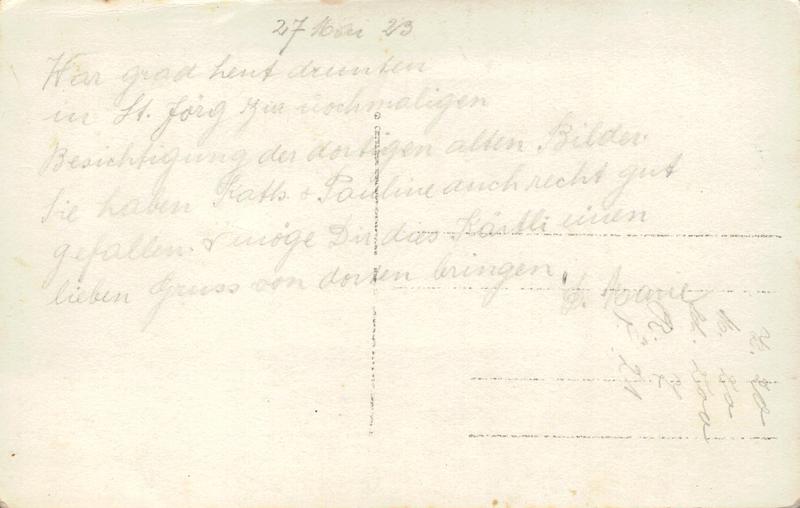 27 Mai 23
War grad heut drunten
in St. Jörg zur nochmaligen
Besichtigung der dortigen alten Bilder.
Sie haben Kath. & Pauline auch recht gut
gefallen. & möge Dir das Kärtli einen
lieben Gruss von dorten bringen,
D. Marie